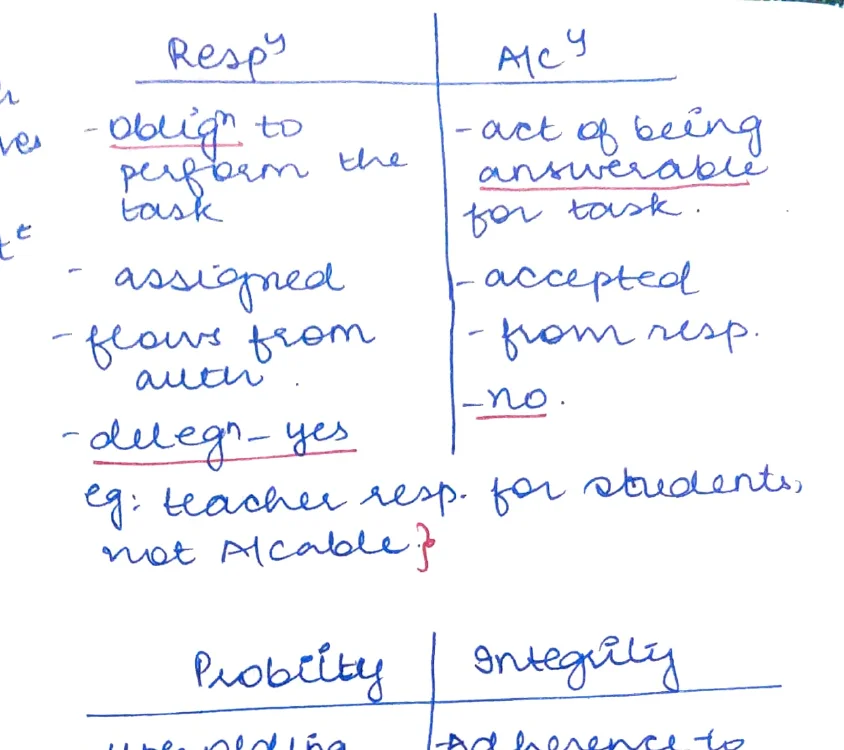 Respʸ
A/cʸ
- obligⁿ to
perform the
task
- assigned
- flows from
auth.
- delegⁿ - yes
- act of being
answerable
for task.
- accepted
- from resp.
- no.
eg: teacher resp. for students,
not A/cable }
Probity
Integrity
- Adherence to